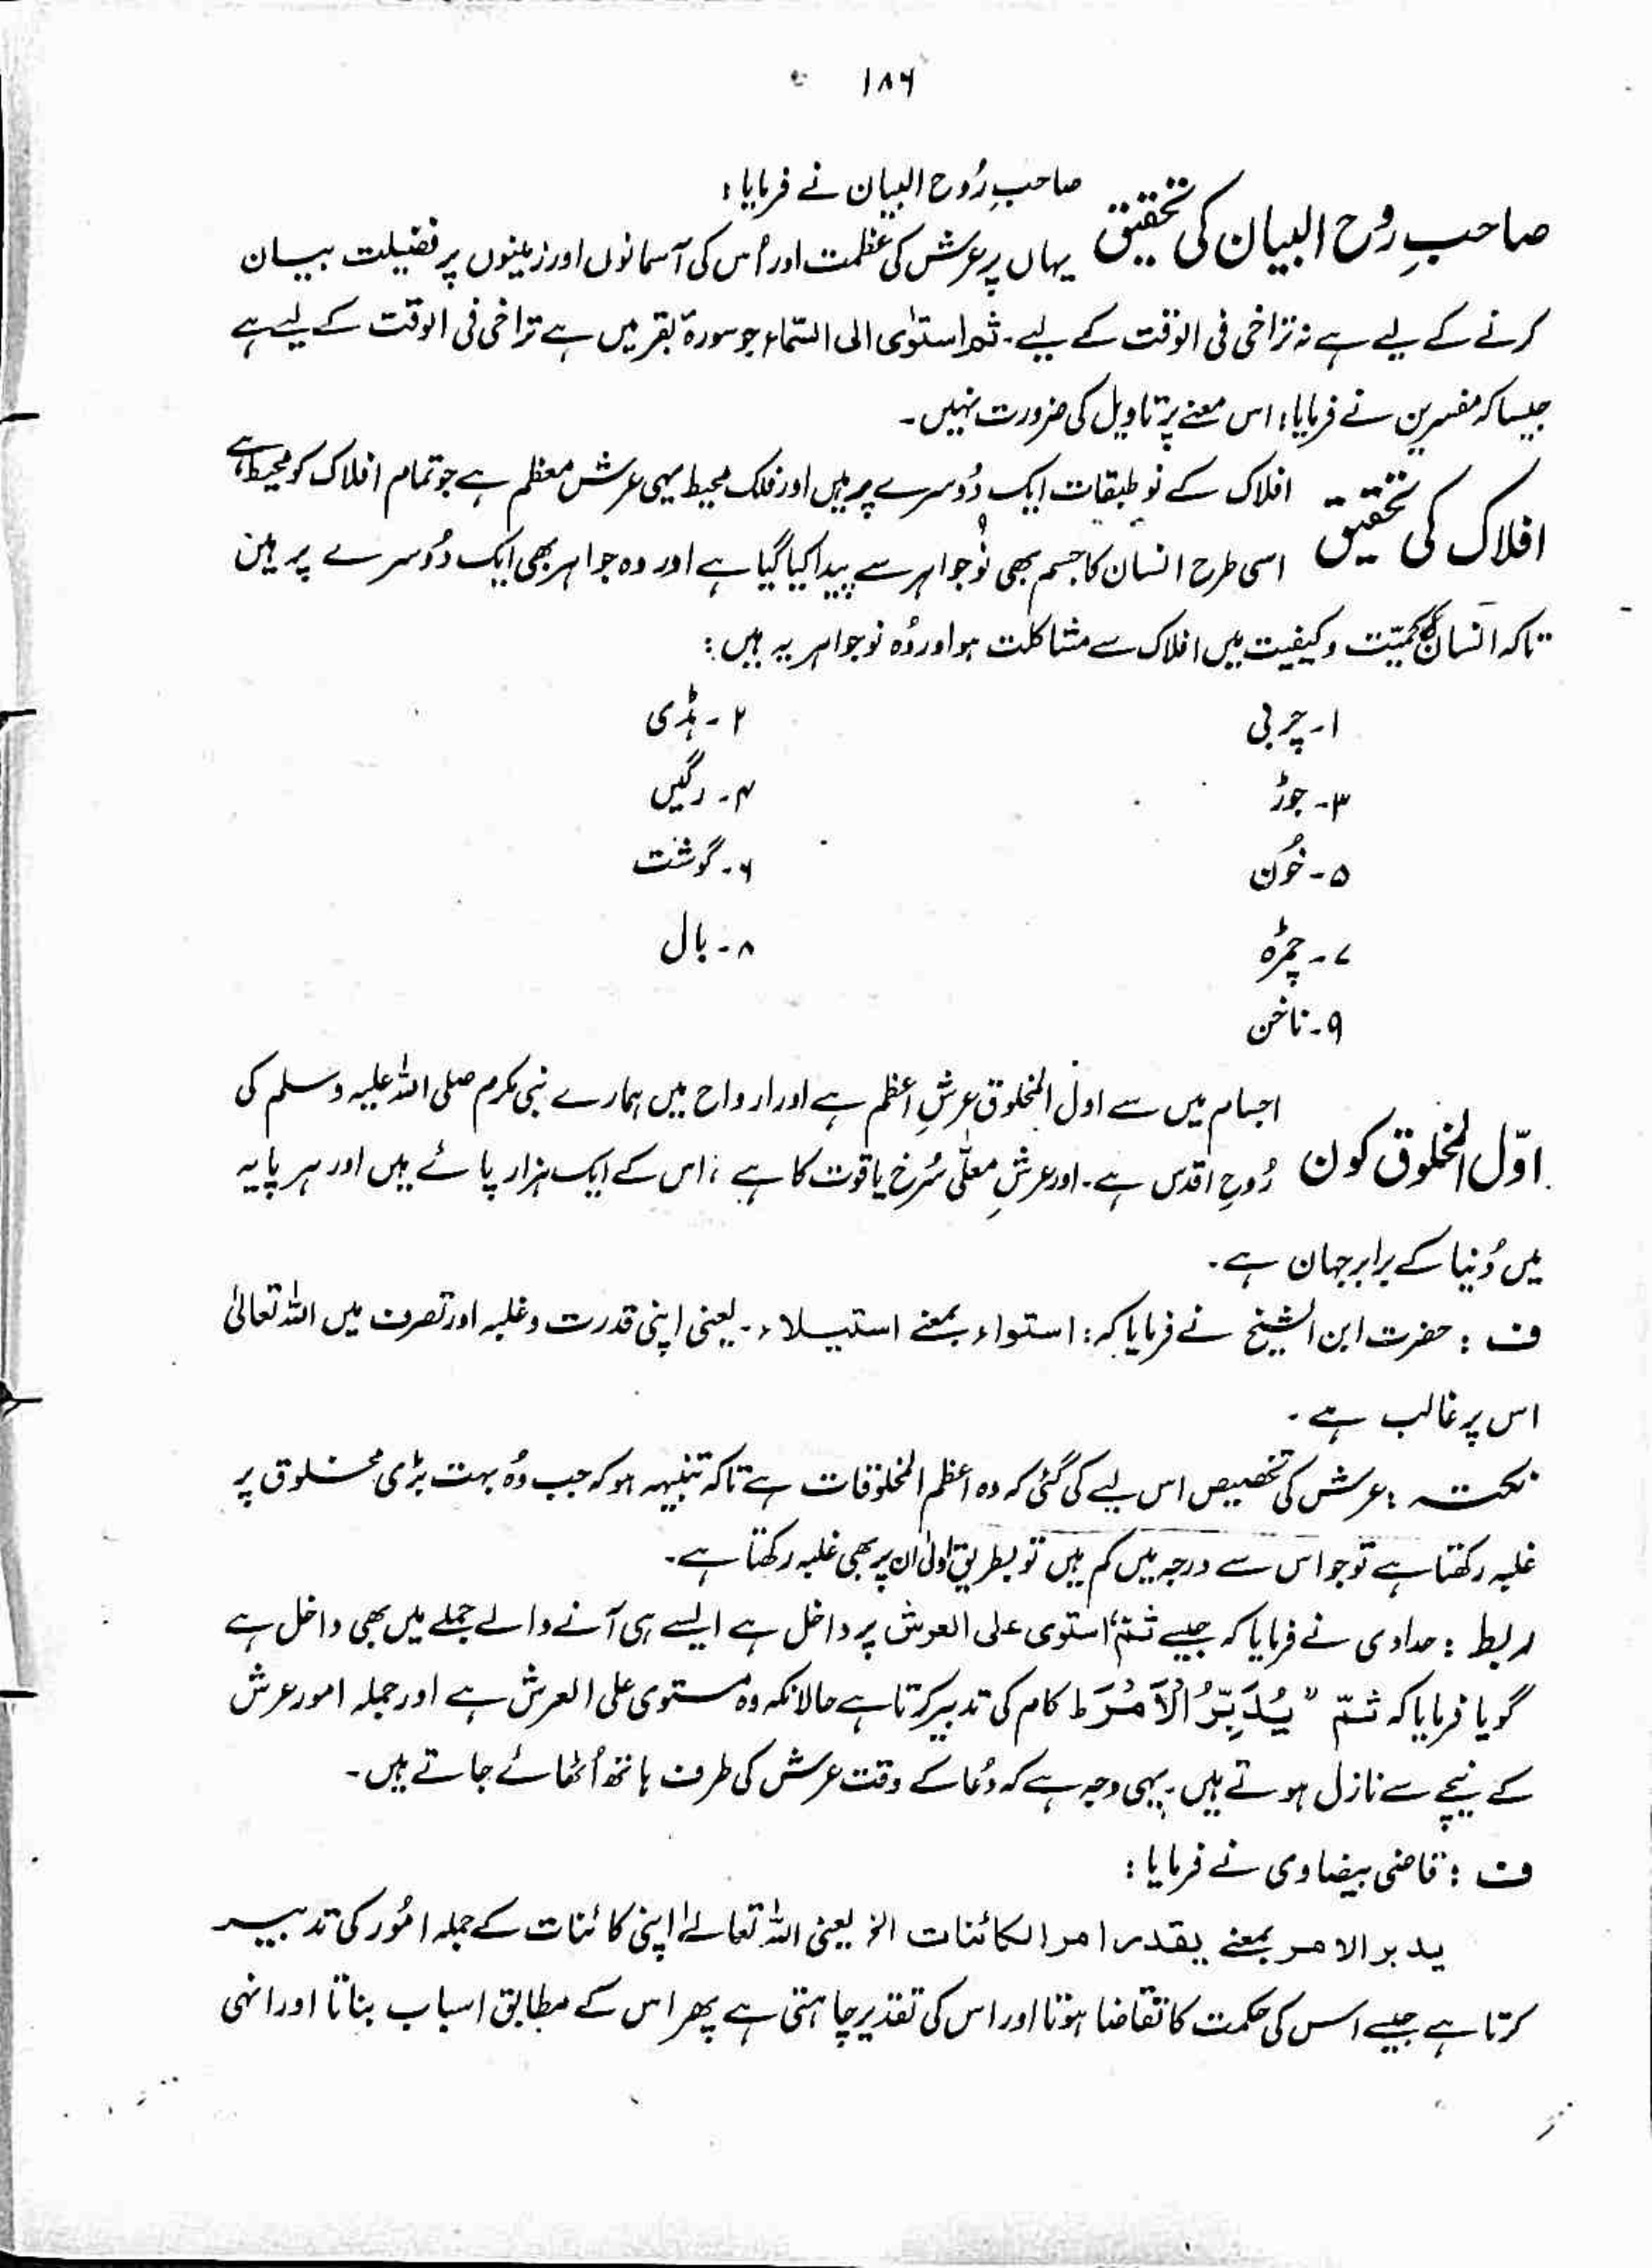 ۱۸۶
صاحبِ روح البیان کی تحقیق صاحبِ رُوح البیان نے فرمایا:
یہاں پر عرش کی عظمت اور اُس کی آسمانوں اور زمینوں پر فضیلت بیان
کرنے کے لیے ہے نہ تراخی فی الوقت کے لیے۔ ثم استوٰی الی السّماء جو سورۃ بقر میں ہے تراخی فی الوقت کے لیے ہے
جیسا کہ مفسرین نے فرمایا، اس معنے پر تاویل کی ضرورت نہیں۔
افلاک کی تحقیق افلاک کے نو طبقات ایک دُوسرے پر ہیں اور فلک محیط یہی عرش معظم ہے جو تمام افلاک کو محیط ہے
اسی طرح انسان کا جسم بھی نُو جواہر سے پیدا کیا گیا ہے اور وہ جواہر بھی ایک دُوسرے پر ہین
تاکہ انسان کی کمیّت و کیفیت میں افلاک سے مشاکلت ہو اور وُہ نو جواہر یہ ہیں :
۱۔ چربی ۲۔ ہڈی
۳۔ جوڑ ۴۔ رگیں
۵۔ خُون ۶۔ گوشت
۷۔ چمڑہ ۸۔ بال
۹۔ ناخن
اوّل المخلوق کون اجسام میں سے اول المخلوق عرشِ اعظم ہے اور ارواح میں ہمارے نبی مکرم صلی اللہ علیہ وسلم کی
رُوحِ اقدس ہے۔ اور عرشِ معلّٰی سُرخ یاقوت کا ہے ، اس کے ایک ہزار پائے ہیں اور ہر پایہ
میں دُنیا کے برابر جہان ہے۔
ف : حضرت ابن الشیخ نے فرمایا کہ : استواء بمعنے استیلاء ۔ یعنی اپنی قدرت و غلبہ اور تصرف میں اللہ تعالیٰ
اس پر غالب ہے ۔
نکتہ : عرش کی تخصیص اس لیے کی گئی کہ وہ اعظم المخلوقات ہے تاکہ تنبیہہ ہو کہ جب وُہ بہت بڑی مخلوق پر
غلبہ رکھتا ہے تو جو اس سے درجہ میں کم ہیں تو بطریق اولیٰ ان پر بھی غلبہ رکھتا ہے۔
ربط : حدادی نے فرمایا کہ جیسے ثمّ استوی علی العرش پر داخل ہے ایسے ہی آنے والے جملے میں بھی داخل ہے
گویا فرمایا کہ ثمّ " یُدَبِّرُ الْاَمْرَ ط کام کی تدبیر کرتا ہے حالانکہ وہ مستوی علی العرش ہے اور جملہ امور عرش
کے نیچے سے نازل ہوتے ہیں۔ یہی وجہ ہے کہ دُعا کے وقت عرش کی طرف ہاتھ اُٹھائے جاتے ہیں۔
ف : قاضی بیضاوی نے فرمایا :
یدبر الامر بمعنے یقدر امر الکائنات الخ یعنی اللہ تعالےٰ اپنی کائنات کے جملہ امُور کی تدبیر
کرتا ہے جیسے اس کی حکمت کا تقاضا ہوتا اور اس کی تقدیر چاہتی ہے پھر اس کے مطابق اسباب بناتا اور انہی